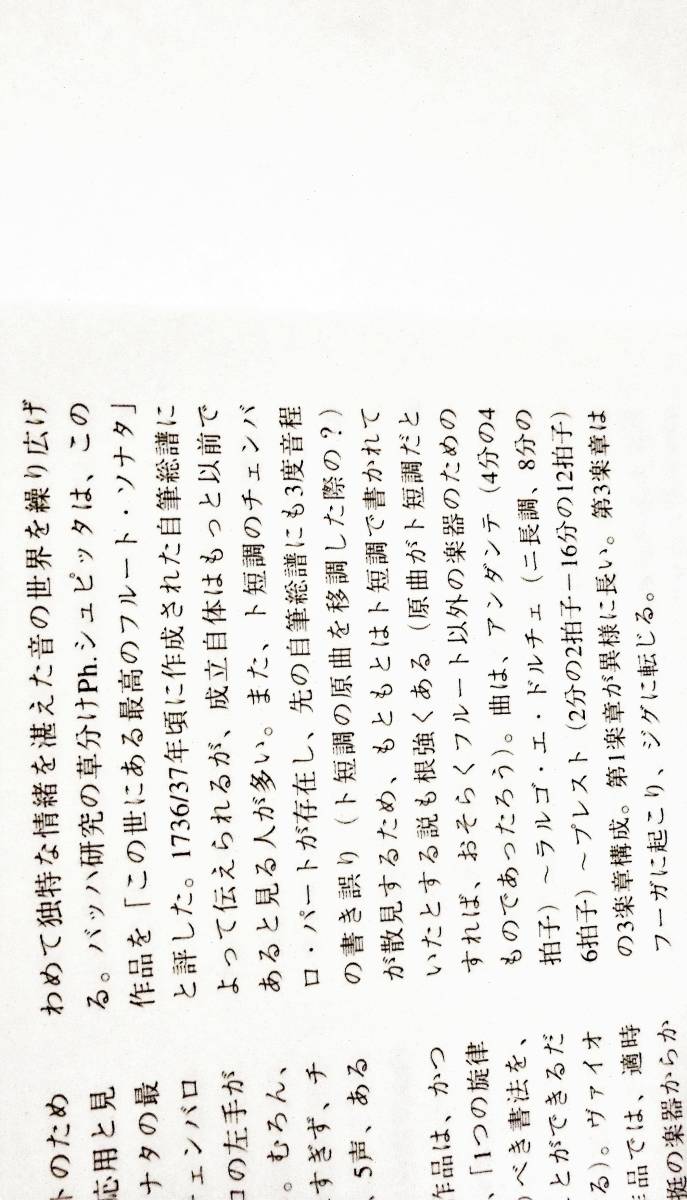 わめて独特な情緒を湛えた音の世界を繰り広げ
る。バッハ研究の草分けPh.シュピッタは、この
作品を「この世にある最高のフルート・ソナタ」
と評した。1736/37年頃に作成された自筆総譜に
よって伝えられるが、成立自体はもっと以前で
あると見る人が多い。また、ト短調のチェンバ
ロ・パートが存在し、先の自筆総譜にも3度音程
の書き誤り（ト短調の原曲を移調した際の？）
が散見するため、もともとはト短調で書かれて
いたとする説も根強くある（原曲がト短調だと
すれば、おそらくフルート以外の楽器のための
ものであったろう）。曲は、アンダンテ（4分の4
拍子）～ラルゴ・エ・ドルチェ（ニ長調、8分の
6拍子）～プレスト（2分の2拍子－16分の12拍子）
の3楽章構成。第1楽章が異様に長い。第3楽章は
フーガに起こり、ジグに転じる。
トのため
応用と見
ナタの最
チェンバロ
ロの左手が
。むろん、
すぎず、チ
、5声、ある
作品は、かつ
、「1つの旋律
べき書法を、
とができるだ
る）。ヴァイオ
作品では、適時
挺の楽器からか